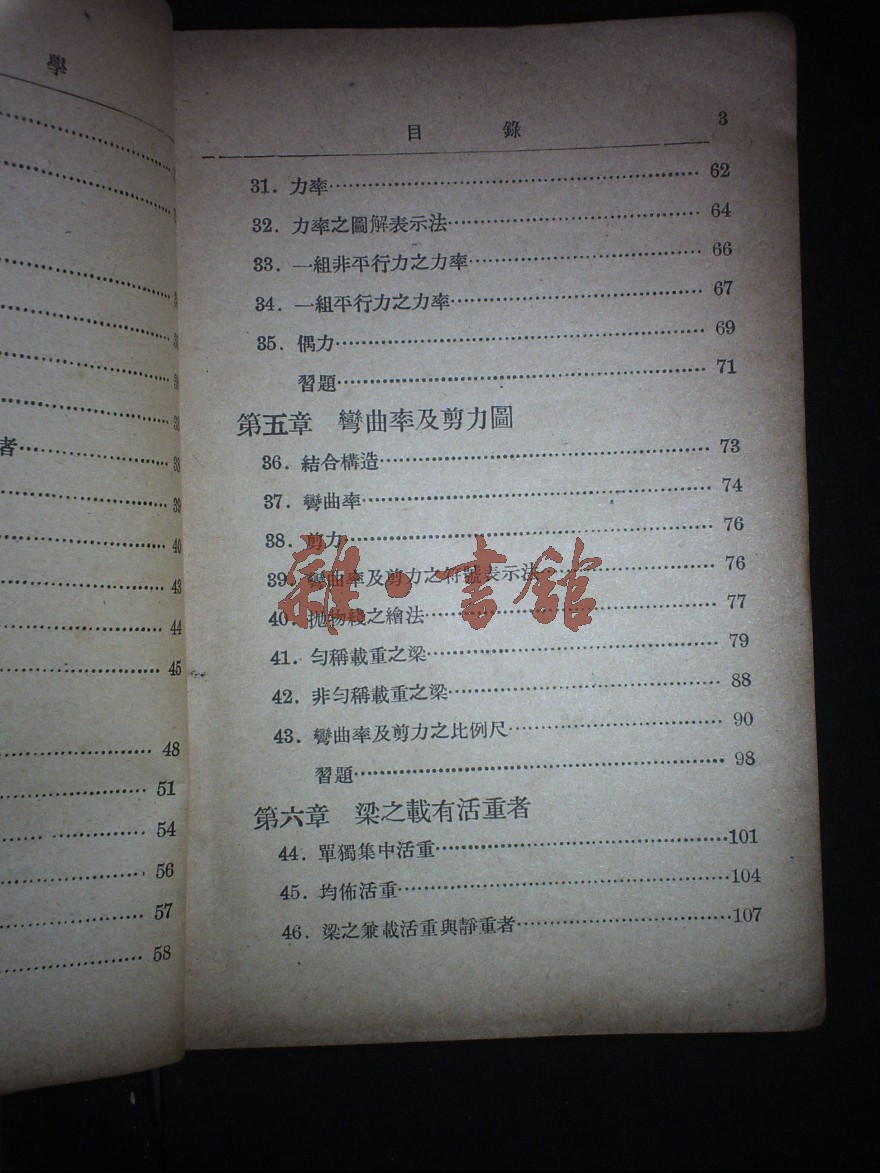 學
者
38
39
40
43
44
45
48
51
54
56
57
58
目錄 3
31. 力率 62
32. 力率之圖解表示法 64
33. 一組非平行力之力率 66
34. 一組平行力之力率 67
35. 偶力 69
習題 71
第五章 彎曲率及剪力圖
36. 結合構造 73
37. 彎曲率 74
38. 剪力 76
39. 彎曲率及剪力之符號表示法 76
40. 拋物綫之繪法 77
41. 勻稱載重之梁 79
42. 非勻稱載重之梁 88
43. 彎曲率及剪力之比例尺 90
習題 98
第六章 梁之載有活重者
44. 單獨集中活重 101
45. 均佈活重 104
46. 梁之兼載活重與靜重者 107
雜·書館